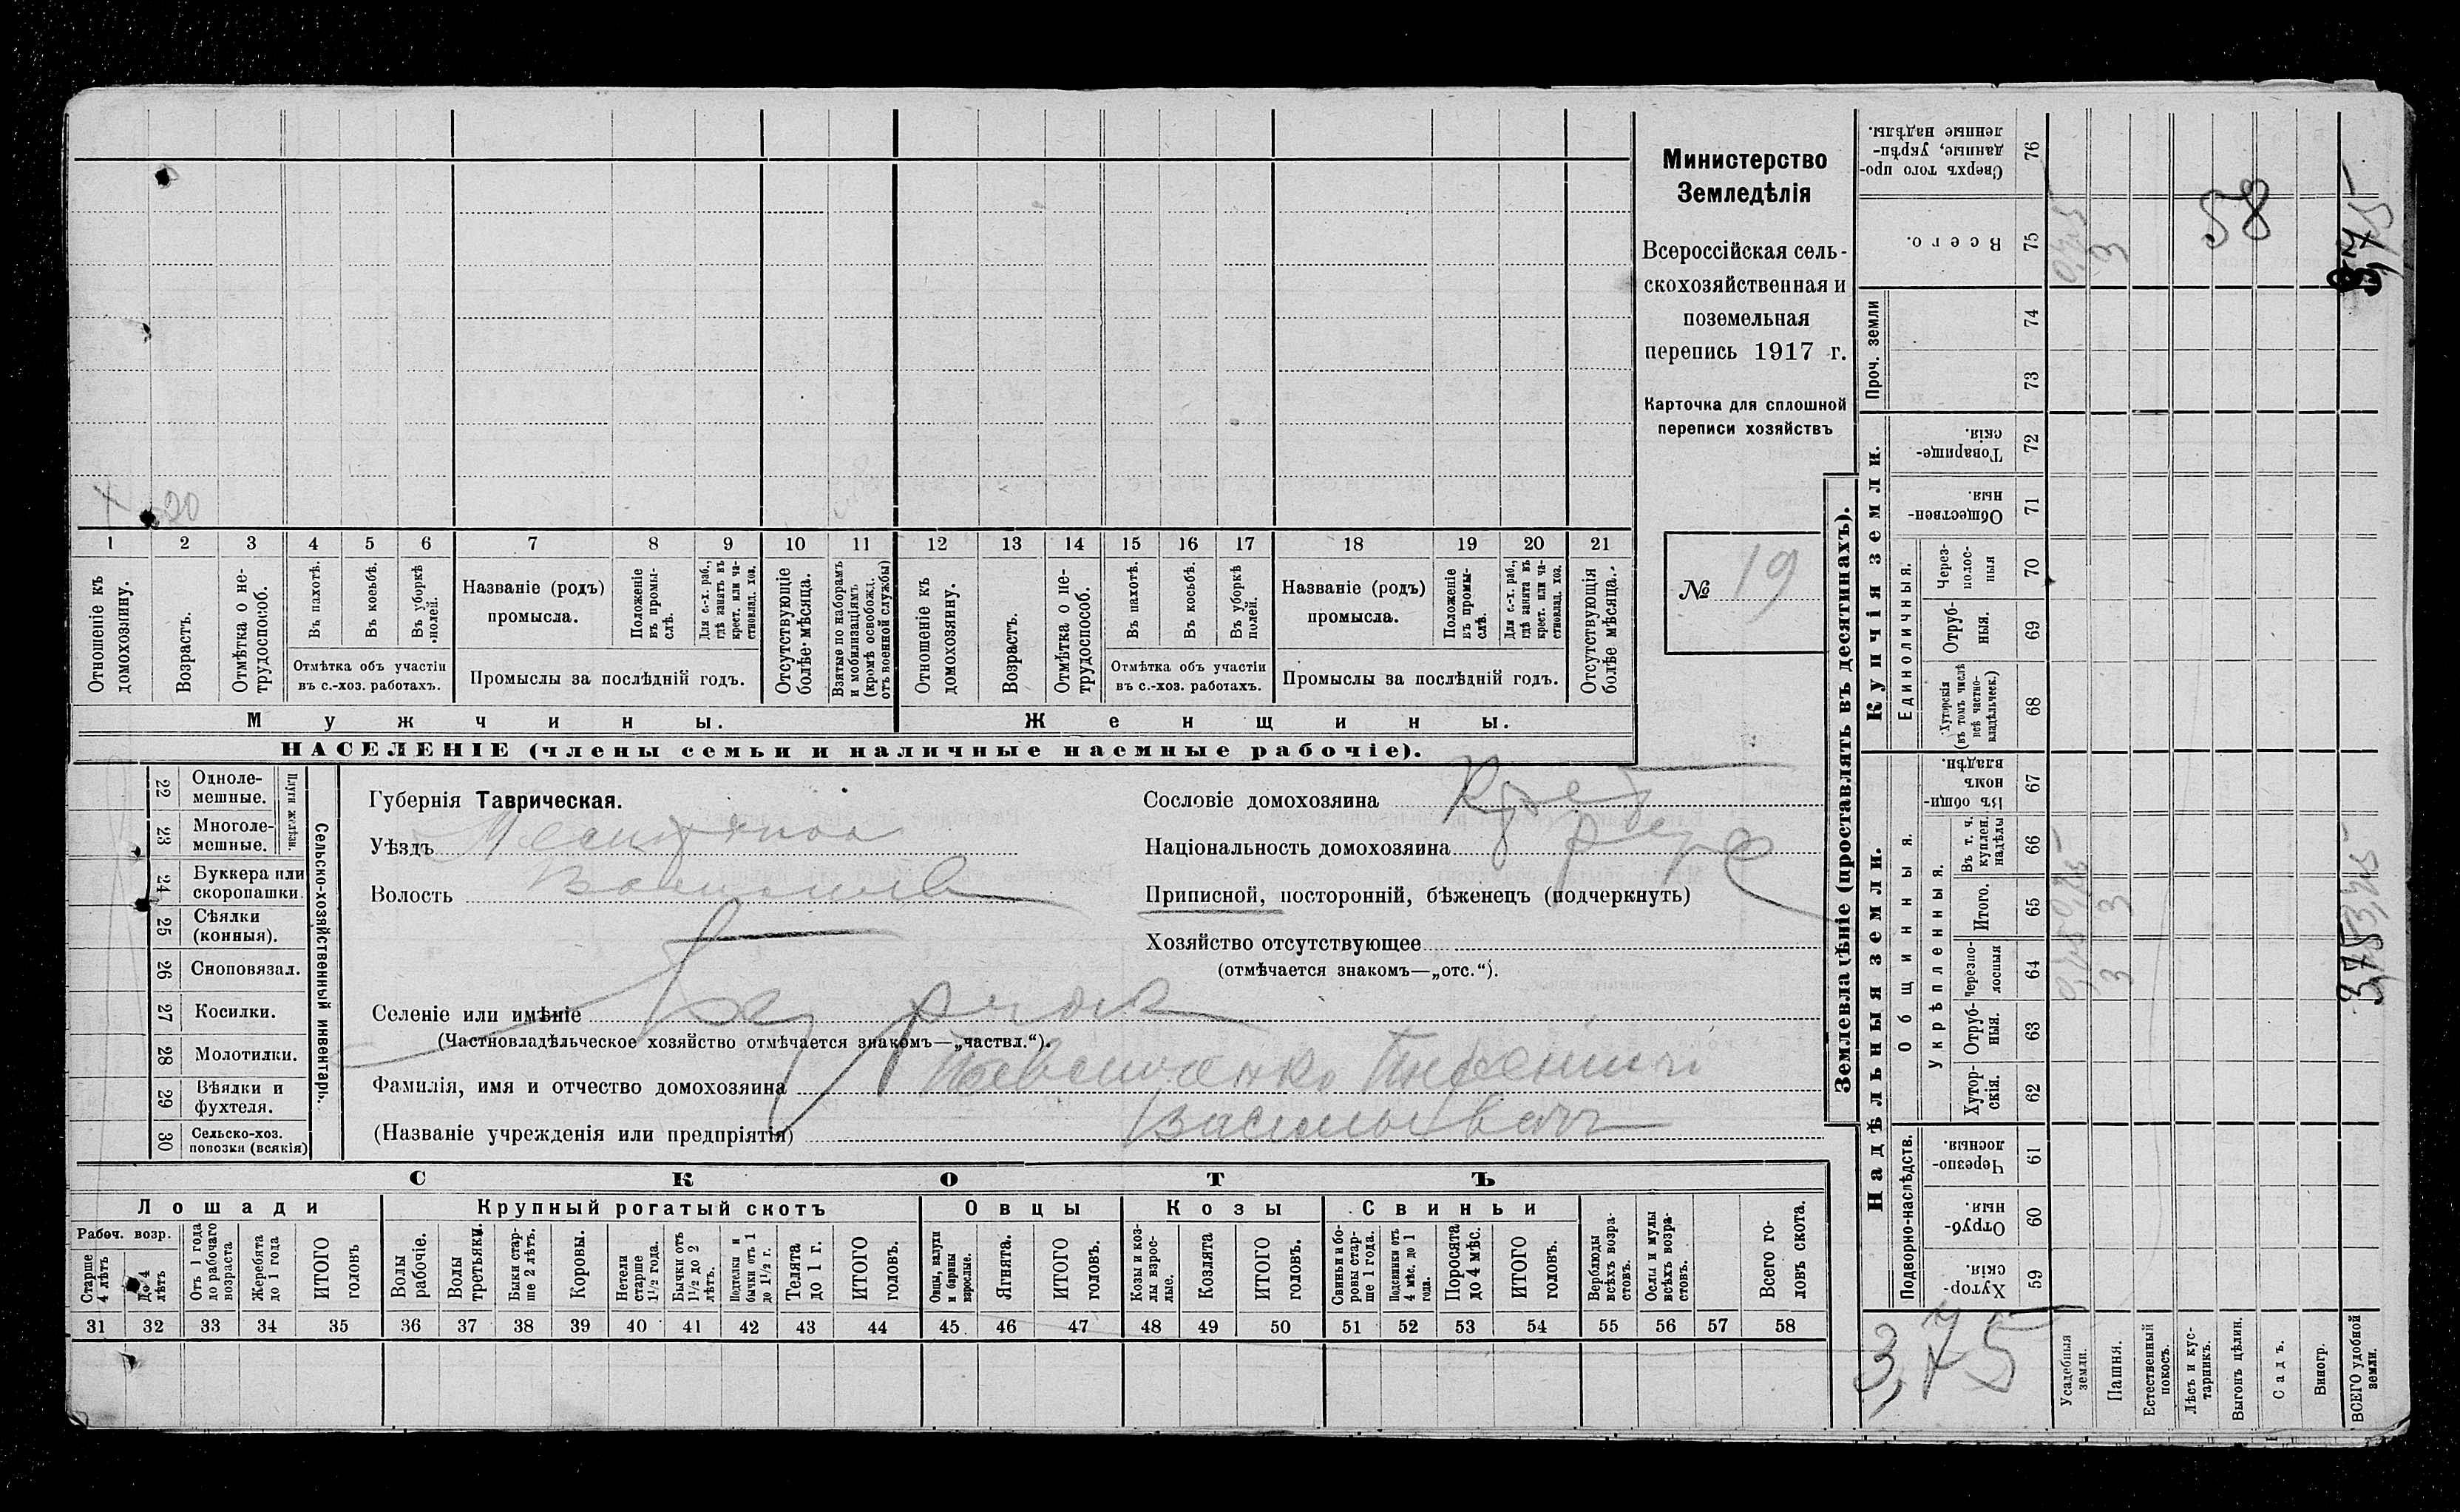 Министерство
Земледѣлія
Всероссійская сель-
скохозяйственная и
поземельная
перепись 1917 г.
Карточка для сплошной
переписи хозяйствъ
№ 19
20
1 2 3 4 5 6 7 8 9 10 11 12 13 14 15 16 17 18 19 20 21
Отношеніе къ домохозяину.
Возрастъ.
Отмѣтка о не-трудоспособ.
Въ пахотѣ.
Въ косьбѣ.
Въ уборкѣ полей.
Отмѣтка объ участіи
въ с.-хоз. работахъ.
Названіе (родъ)
промысла.
Положеніе въ промы-слѣ.
Для с.-х. раб., гдѣ занятъ въ крест. или ча-стновлад. хоз.
Промыслы за послѣдній годъ.
Отсутствующіе болѣе мѣсяца.
Взятые по наборамъ и мобилизаціямъ (кромѣ освобожд. отъ военной службы)
Отношеніе къ домохозяину.
Возрастъ.
Отмѣтка о не-трудоспособ.
Въ пахотѣ.
Въ косьбѣ.
Въ уборкѣ полей.
Отмѣтка объ участіи
въ с.-хоз. работахъ.
Названіе (родъ)
промысла.
Положеніе въ промы-слѣ.
Для с.-х. раб., гдѣ занята въ крест. или ча-стновлад. хоз.
Промыслы за послѣдній годъ.
Отсутствующія болѣе мѣсяца.
Мужчины.
Женщины.
НАСЕЛЕНІЕ (члены семьи и наличные наемные рабочіе).
22 Одноле-мешные.
23 Многоле-мешные.
Плуги желѣзн.
24 Буккера или скоропашки.
25 Сѣялки (конныя).
26 Сноповязал.
27 Косилки.
28 Молотилки.
29 Вѣялки и фухтеля.
30 Сельско-хоз. повозки (всякія)
Сельско-хозяйственный инвентарь.
Губернія Таврическая.
Уѣздъ
Волость
Селеніе или имѣніе
(Частновладѣльческое хозяйство отмѣчается знакомъ—„частвл.“).
Фамилія, имя и отчество домохозяина
(Названіе учрежденія или предпріятія) Васильевичъ
Сословіе домохозяина Крест
Національность домохозяина
Приписной, посторонній, бѣженецъ (подчеркнуть)
Хозяйство отсутствующее
(отмѣчается знакомъ—„отс.“).
СКОТЪ
Лошади
Крупный рогатый скотъ
Овцы
Козы
Свиньи
Рабоч. возр.
Старше 4 лѣтъ
До 4 лѣтъ
Отъ 1 года до рабочаго возраста
Жеребята до 1 года
ИТОГО головъ
Волы рабочіе.
Волы третьяки.
Быки стар-ше 2 лѣтъ.
Коровы.
Нетели старше 1½ года.
Бычки отъ 1½ до 2 лѣтъ.
Подтелки и бычки отъ 1 до 1½ г.
Телята до 1 г.
ИТОГО головъ.
Овцы, валухи и бараны взрослые.
Ягнята.
ИТОГО головъ.
Козы и коз-лы взрос-лые.
Козлята
ИТОГО головъ.
Свиньи и бо-ровы стар-ше 1 года.
Подсвинки отъ 4 мѣс. до 1 года.
Поросята до 4 мѣс.
ИТОГО головъ.
Верблюды всѣхъ возра-стовъ.
Ослы и мулы всѣхъ возра-стовъ.
Всего го-ловъ скота.
31 32 33 34 35 36 37 38 39 40 41 42 43 44 45 46 47 48 49 50 51 52 53 54 55 56 57 58
Землевладѣніе (проставлять въ десятинахъ).
Купчія земли.
Надѣльныя земли.
Проч. земли
Единоличныя.
Общинныя.
Укрѣпленныя.
Подворно-наслѣдств.
Сверхъ того про-данные, укрѣп-ленные надѣлы. 76
Всего. 75
74
73
Товарище-скія. 72
Обществен-ныя. 71
Через-полос-ныя 70
Отруб-ныя. 69
Хуторскія (въ томъ числѣ всѣ частно-владѣльческ.) 68
Въ общин-номъ владѣн. 67
Въ т. ч. куплен. надѣлы 66
Итого. 65
Черезпо-лосныя 64
Отруб-ныя. 63
Хутор-скія. 62
Черезпо-лосныя 61
Отруб-ныя. 60
Хутор-скія. 59
Усадебныя земли.
Пашня.
Естественный покосъ.
Лѣсъ и кус-тарникъ.
Выгонъ цѣлин.
Садъ.
Виногр.
ВСЕГО удобной земли.
58
3
3 3
3,75
3,75